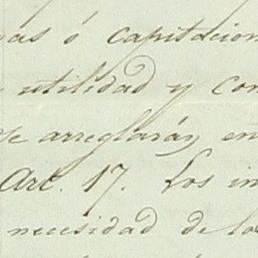 vas ó capitacion
utilidad y con
se arreglarán en
Art. 17. Los in
necesidad de los